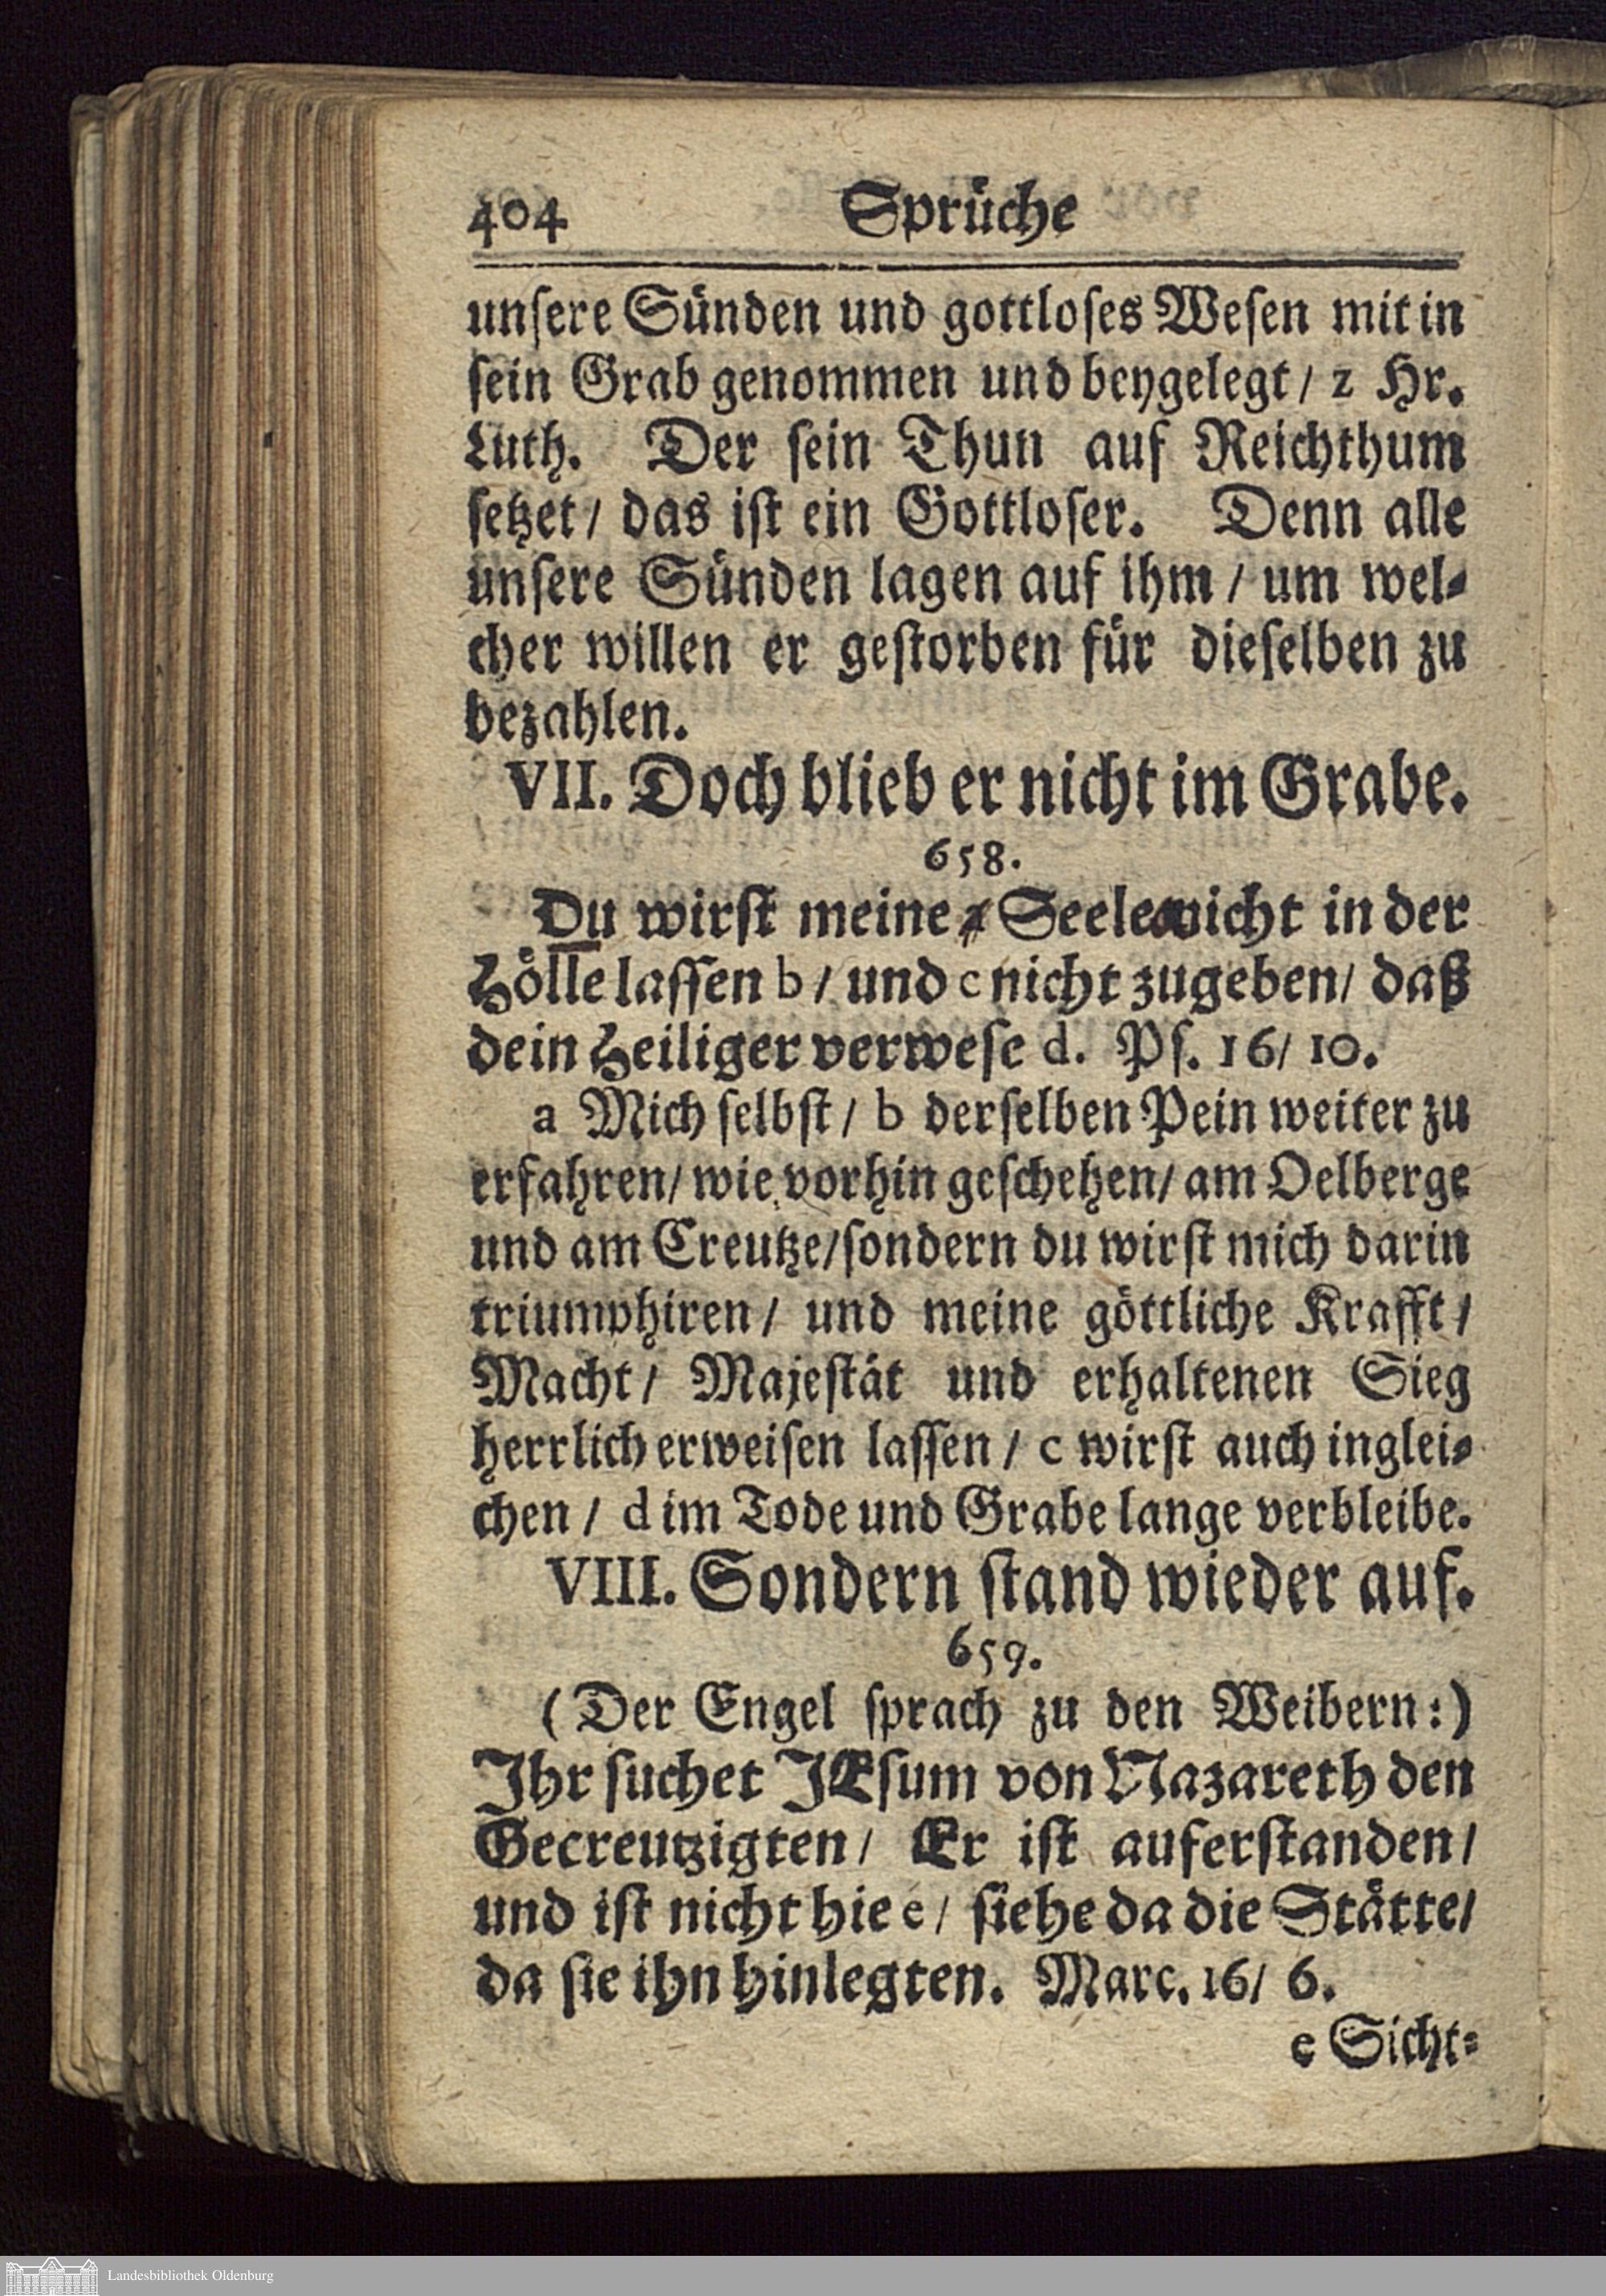 404 Sprüche
unsere Sünden und gottloses Wesen mit in
sein Grab genommen und beygelegt / z Hr.
Luth. Der sein Thun auf Reichthum
setzet / das ist ein Gottloser. Denn alle
unsere Sünden lagen auf ihm / um wel-
cher willen er gestorben für dieselben zu
bezahlen.
VII. Doch blieb er nicht im Grabe.
658.
Du wirst meine a Seele nicht in der
Hölle lassen b / und c nicht zugeben / daß
dein Heiliger verwese d. Ps. 16/ 10.
a Mich selbst / b derselben Pein weiter zu
erfahren / wie vorhin geschehen / am Oelberge
und am Creutze / sondern du wirst mich darin
triumphiren / und meine göttliche Krafft /
Macht / Majestät und erhaltenen Sieg
herrlich erweisen lassen / c wirst auch inglei-
chen / d im Tode und Grabe lange verbleibe.
VIII. Sondern stand wieder auf.
659.
(Der Engel sprach zu den Weibern:)
Ihr suchet JEsum von Nazareth den
Gecreutzigten / Er ist auferstanden /
und ist nicht hie e / siehe da die Stätte /
da sie ihn hinlegten. Marc. 16/ 6.
e Sicht-
Landesbibliothek Oldenburg